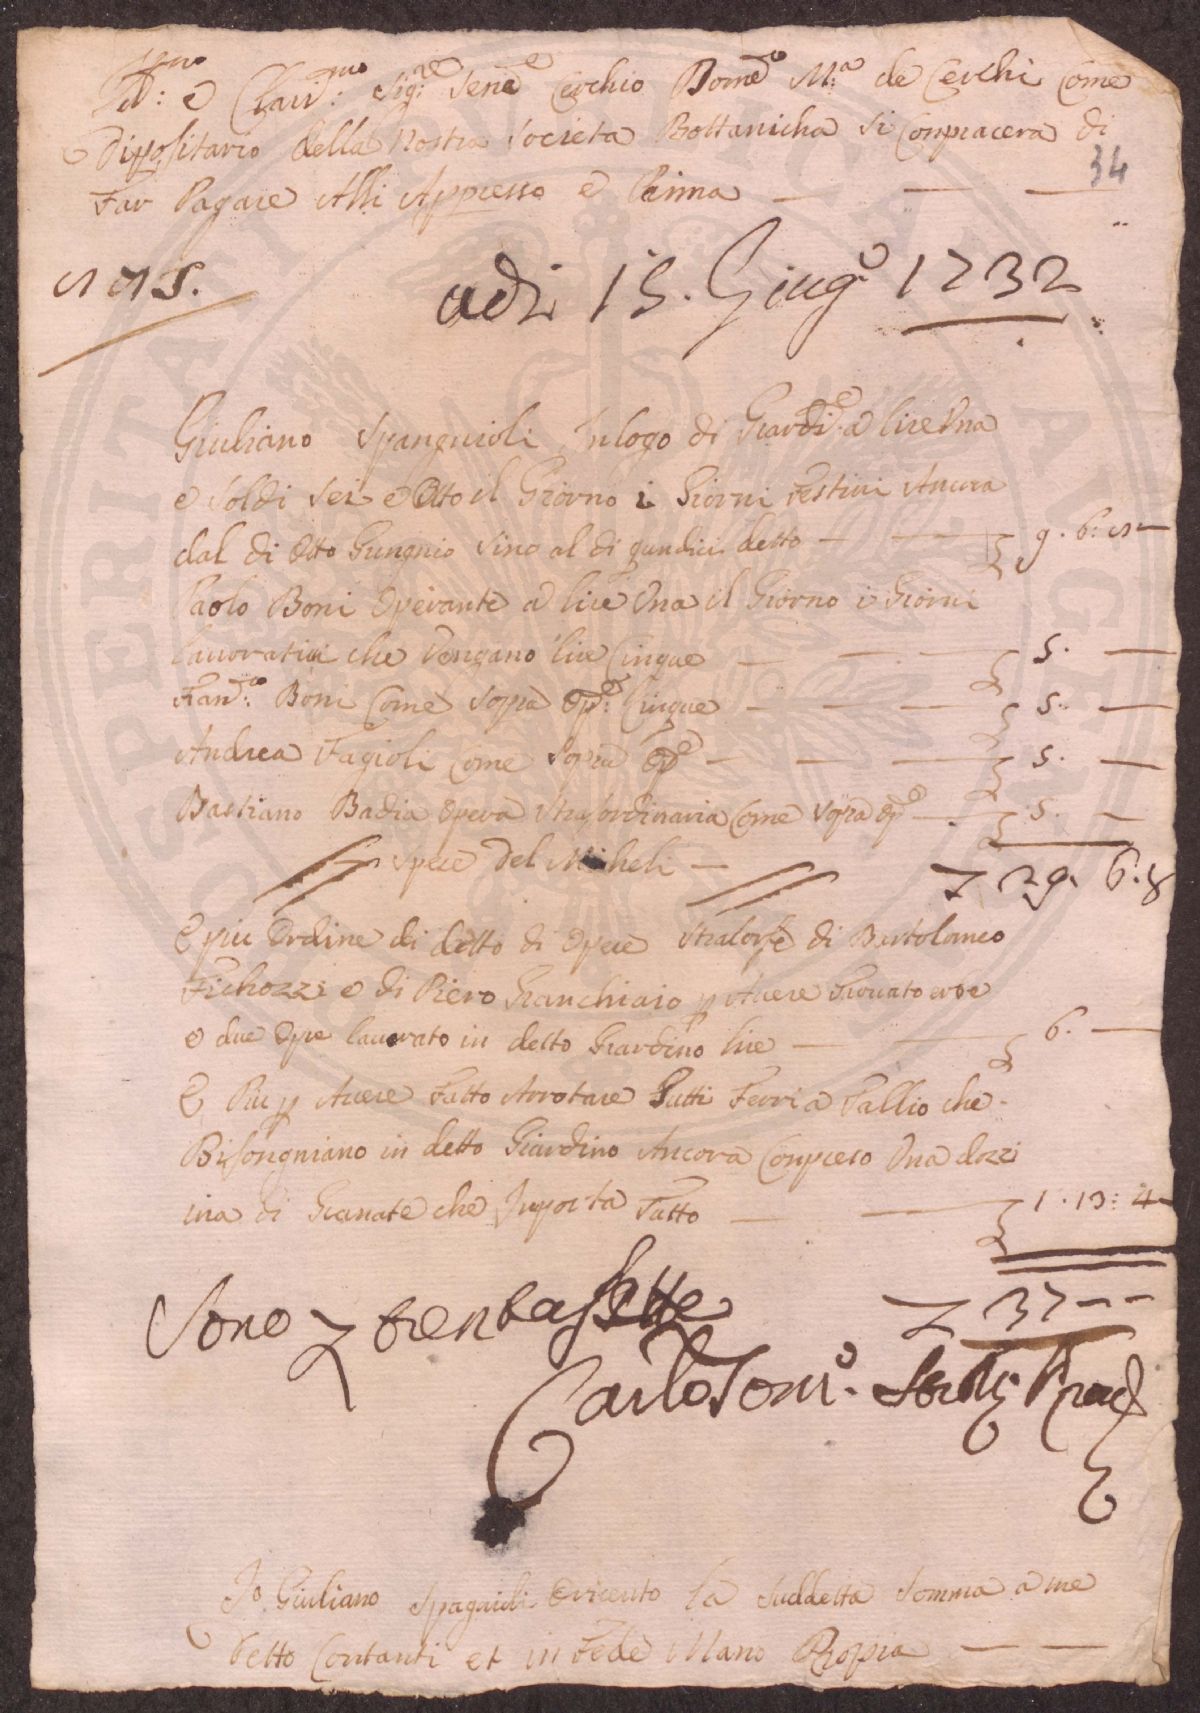 Ill:mo e Clari:mo Sig:re Sene Cerchio Bome:co M:a de Cerchi Come
Dipositario della Nostra Societa Bottanicha si Conpiacera di
Far Pagare Alli Appresso e Prima
34
N 15.
adi 15. Giugo 1732
Giuliano Spangnioli Inlogo di Giardi:e a lire Una
e Soldi Sei e Otto il Giorno i Giorni Festivi Ancora
dal di Otto Gungnio Sino al di qundici detto 9. 6: 8
Paolo Boni Operante a lire Una il Giorno i Giorni
lavorativi che Vengano lire Cinque 5.
Fran:co Boni Come Sopra Op:e Cinque 5.
Andrea Fagioli Come Sopra Op:e 5.
Bastiano Badia Opera Strasordinaria Come Sopra Op:e 5.
Spese Del Micheli
29. 6. 8
E piu Ordine di detto di Opere di Bartolomeo
Fichozzi e di Piero Granchiaio p Avere Trovato erbe
e due Opre lavorato in detto Giardino lire 6.
E Piu p Avere Fatto Arrotare Tutti Ferri a Tallio che
Bisongniano in detto Giardino Ancora Conpreso Una dozzi
ina di Granate che Inporta Tutto 1. 13: 4
37
Sono trentasette
Carlo
Io Giuliano Spagnioli Oricevto la Suddetta Somma a me
Detto Contanti et in Fede Mano Propia